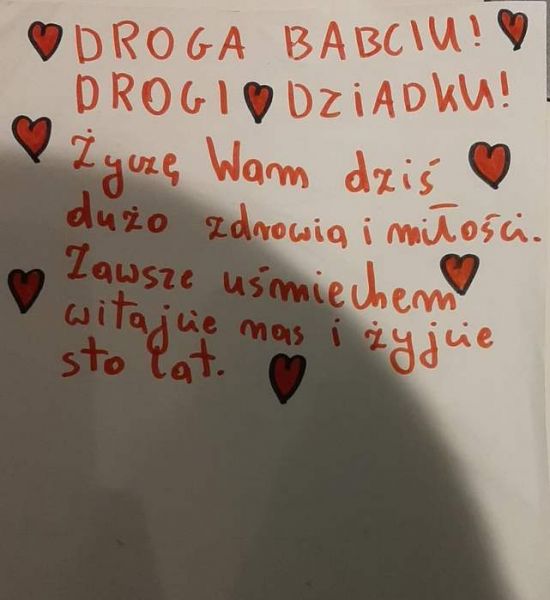 DROGA BABCIU!
DROGI DZIADKU!
Życzę Wam dziś
dużo zdrowia i miłości.
Zawsze uśmiechem
witajcie nas i żyjcie
sto lat.